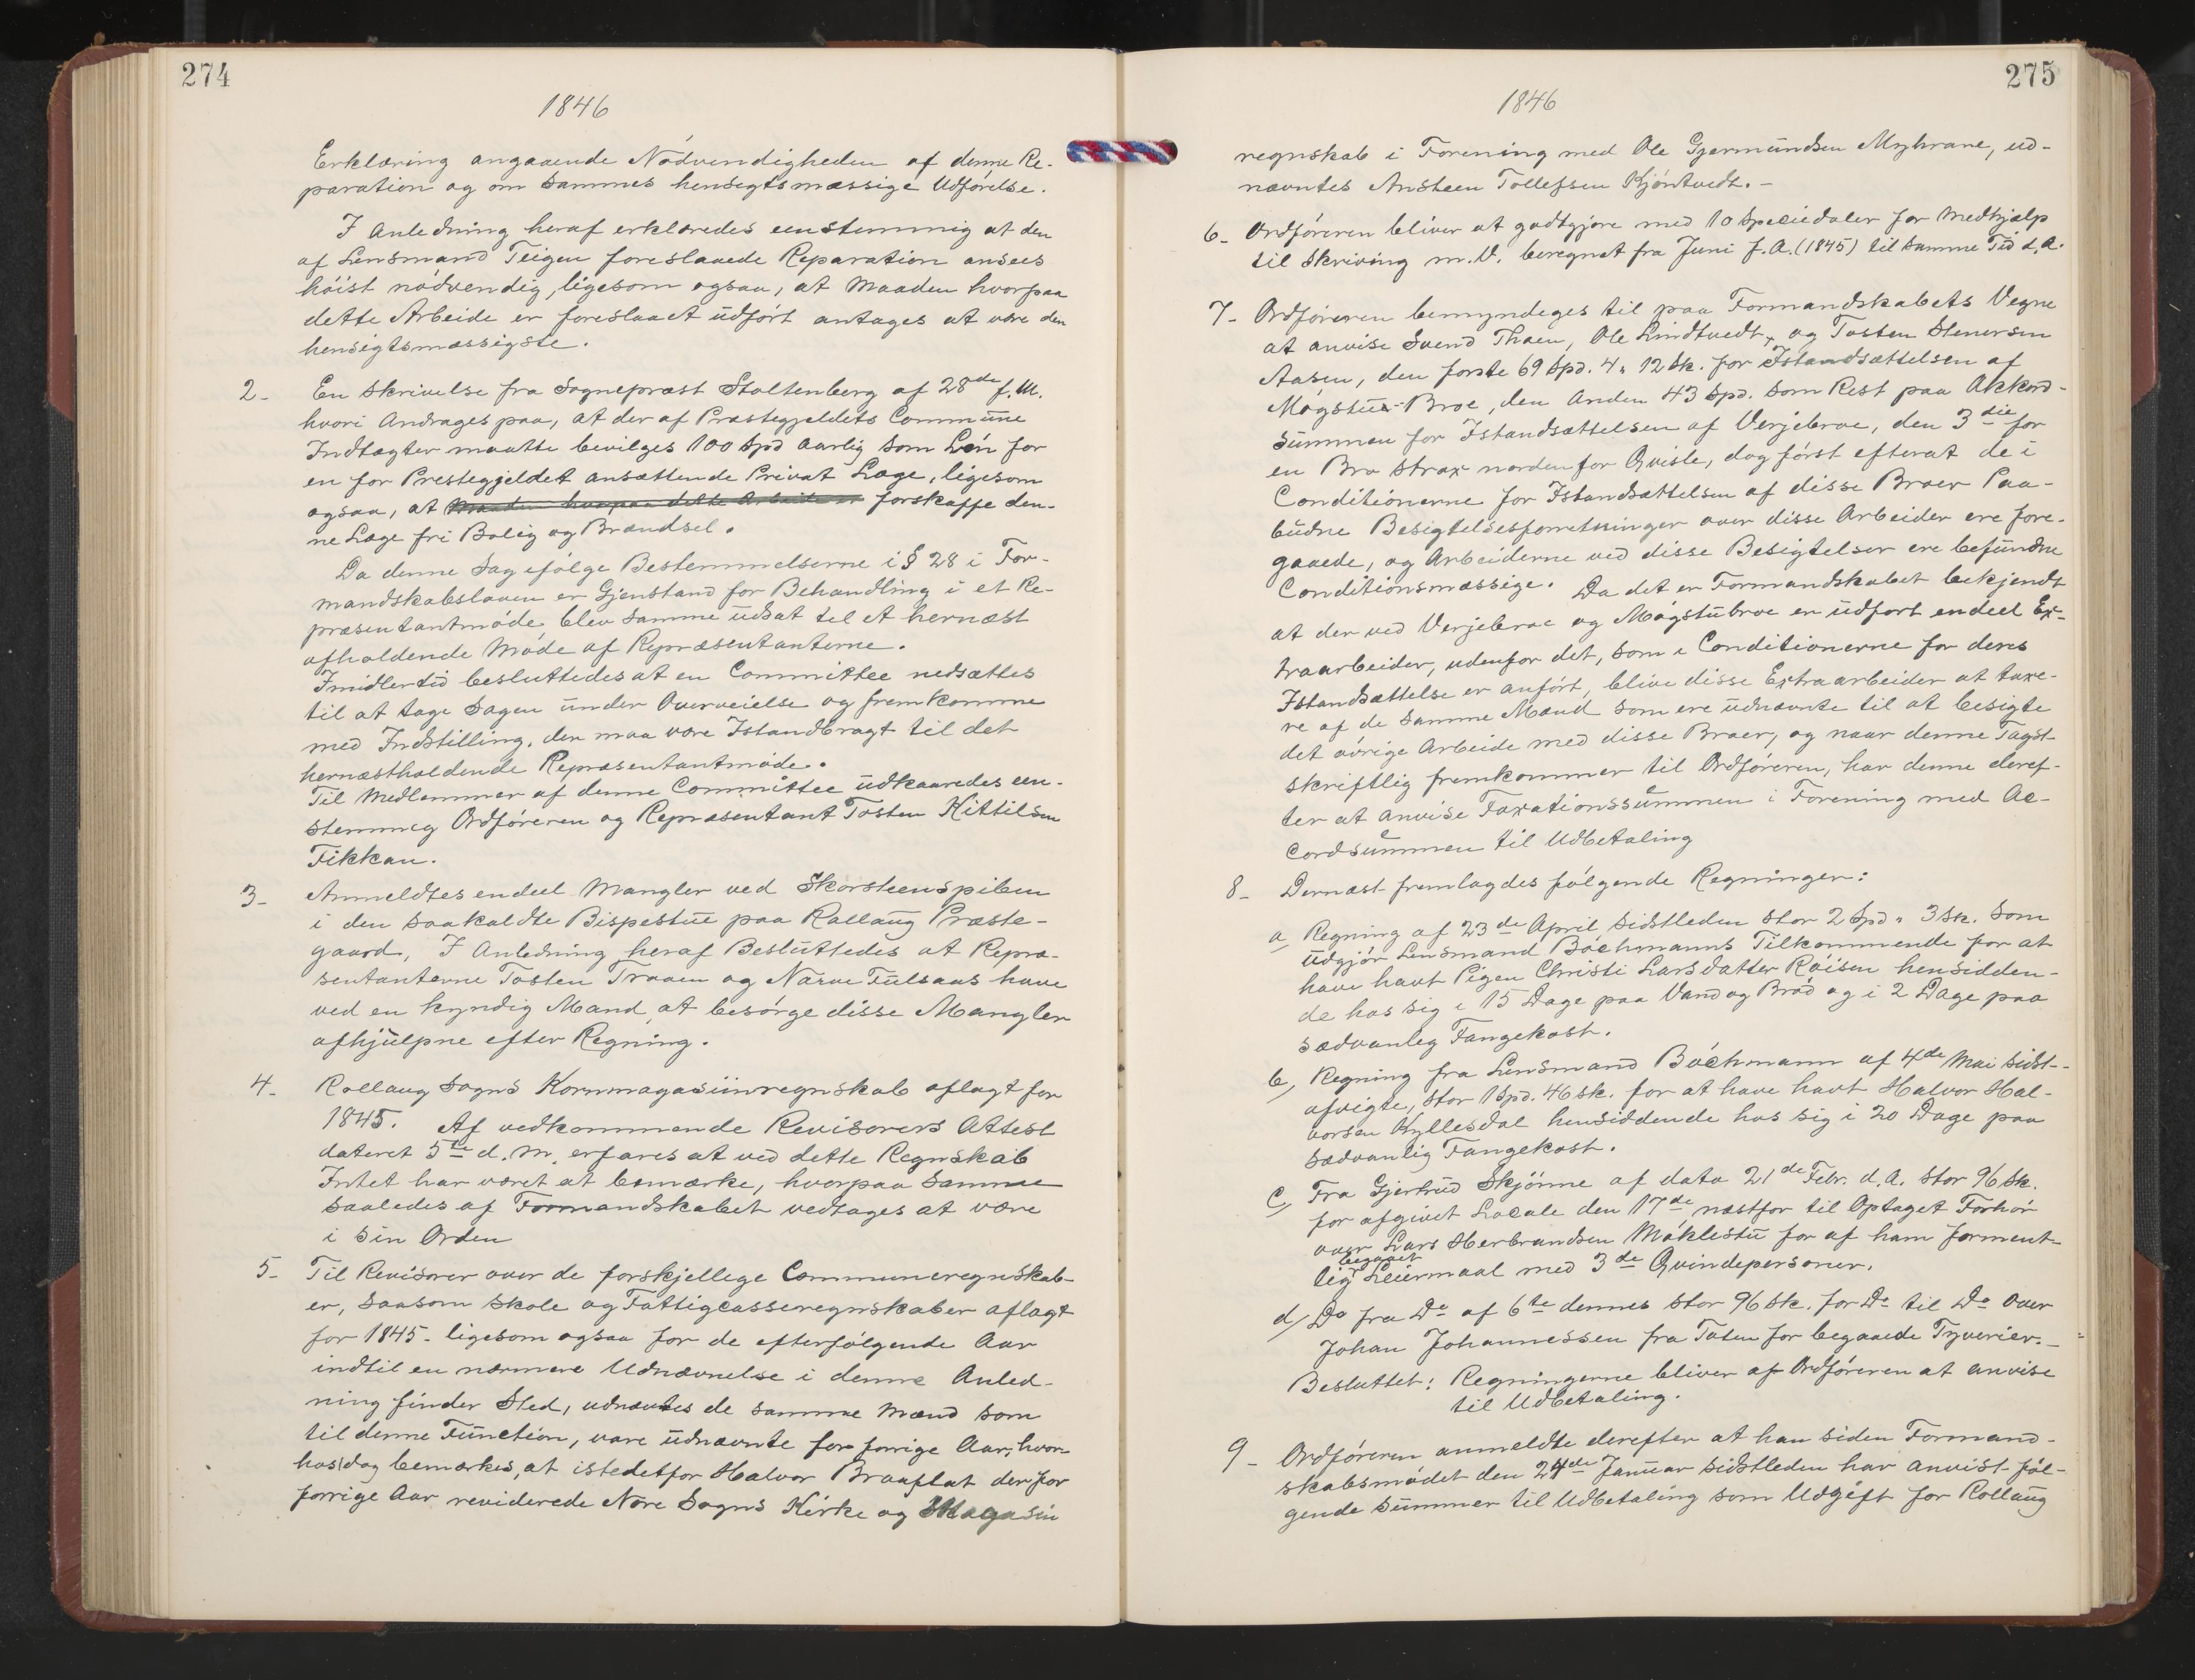 274
1846
Erklæring angaaende Nödvendigheden af denne Re-
paration og om sammes hensigtsmæssige Udförelse.
I Anledning heraf erklæredes eenstemmig at den
af Lensmand Teigen foreslaaede Reparation ansees
höist nödvendig, ligesom ogsaa, at Maaden hvorpaa
dette Arbeide er foreslaaet udfört antages at være den
hensigtsmæssigste.
2- En Skrivelse fra Sognepræst Stoltenberg af 28de f. M.
hvori Andrages paa, at der af Præstegjeldets Commune
Indtægter maatte bevilges 100 Spd aarlig som Lön for
en for Prestegjeldet ansættende Privat Læge, ligesom
ogsaa, at Maaden hvorpaa dette Arbeide er forskaffe den-
ne Læge fri Bolig og Brændsel.
Da denne Sag efölge Bestemmelserne i § 28 i For-
mandskabsloven er Gjenstand for Behandling i et Re-
præsentantmöde blev samme udsat til et hernæst
afholdende Möde af Repræsentanterne.
Imidlertid besluttedes at en Committee nedsættes
til at tage Sagen under Overveielse og fremkomme
med Indstilling, der maa være Istandbragt til det
hernæstholdende Repræsentantmöde.
Til Medlemmer af denne Committee udkaaredes een-
stemmig Ordföreren og Repræsentant Tosten Kittilsen
Fikkan.
3- Anmeldtes endeel Mangler ved Skorsteenspiben
i den saakaldte Bispestue paa Rollaug Præste-
gaard, I Anledning heraf Besluttedes at Repræ-
sentanterne Tosten Traaen og Narve Fulsaas have
ved en kyndig Mand, at besörge disse Mangler
afhjulpne efter Regning.
4- Rollaug Sogns Kornmagasiinregnskab aflagt for
1845. Af vedkommende Revisorers Attest
dateret 5te d. M. erfares at ved dette Regnskab
Intet har været at bemærke, hvorpaa samme
saaledes af Formandskabet vedtages at være
i sin Orden
5- Til Revisorer over de forskjellege Communeregnskab-
er, saasom Skole og Fattigcasseregnskaber aflagt
for 1845- ligesom ogsaa for de efterfölgende Aar
indtil en nærmere Udnævnelse i denne Anled-
ning finder Sted, udnævntes de samme Mænd som
til denne Function, vare udnævnte for forrige Aar, hvor-
hos dog bemærkes, at istedetfor Halvor Braaflat der for
forrige Aar reviderede Nore Sogns Kirke og Magasin
275
1846
regnskab i Forening med Ole Gjermundsen Myhrane, ud-
nævntes Ansteen Tollefsen Kjöntvedt.-
6- Ordföreren bliver at godtgjöre med 10 Speciedaler for Medhjælp
til Skriving m. V. beregnet fra Juni f. A. (1845) til samme Tid d. A.
7- Ordföreren bemyndeges til paa Formandskabets Vegne
at anvise Svend Thoen, Ole Lindtvedt, og Tosten Stenersen
Aasen, den förste 69 Spd. 4 " 12 Sk. for Istandsættelsen af
Mögstue-Broe, den Anden 43 Spd. som Rest paa Akkord-
summen for Istandsættelsen af Verjebroe, den 3die for
en Bro strax nordenfor Qvisle, dog först efterat de i
Conditionerne for Istandsættelsen af disse Broer Paa-
budne Besigtelsesforretninger over disse Arbeider ere fore-
gaaede, og Arbeiderne ved disse Besigtelser ere befundne
Conditionsmæssige. Da det er Formandskabet bekjendt
at der ved Verjebroe og Mögstubroe er udfört endeel Ex-
traarbeider, udenfor det, som i Conditionerne for deres
Istandsættelse er anfört, blive disse Extraarbeider at taxe-
re af de samme Mænd som ere udnævnte til at besigte
det övrige Arbeide med disse Broer, og naar denne Taxst-
skriftlig fremkommer til Ordföreren, har denne deref-
ter at anvise Taxationssummen i Forening med Ac-
cordsummen til Udbetaling
8- Dernæst fremlagdes fölgende Regninger:
a/ Regning af 23de April sidstleden stor 2 Spd " 3 Sk. som
udgjör Lensmand Böchmanns Tilkommende for at
have havt Pigen Christi Larsdatter Röisen hensidden-
de hos sig i 15 Dage paa Vand og Bröd og i 2 Dage paa
sædvanleg Fangekost.
b/ Regning fra Lensmand Böchmann af 4de Mai sidst-
afvigte, stor 1 Spd. 46 sk. for at have havt Halvor Hal-
vorsen Kyllesdal hensiddende hos sig i 20 Dage paa
sædvanlig Fangekost.
c/ Fra Gjertrud Skjönne af dato 21de Febr. d. A. stor 96 Sk.
for afgivet Locale den 17de næstfor til Optaget Forhör
over Lars Herbrandsen Möklestu for af ham forment-
lig begaaet Leiermaal med 3de Qvindepersoner.
d/ Do fra Do af 6te dennes stor 96 Sk. for Do til Do over
Johan Johannessen fra Toten for begaaede Tyverier.-
Besluttet: Regningerne bliver af Ordföreren at anvise
til Udbetaling.
9- Ordföreren anmeldte derefter at han siden Formand-
skabsmödet den 24de Januar sidstleden har anvist föl-
gende Summer til Udbetaling som Udgift for Rollaug